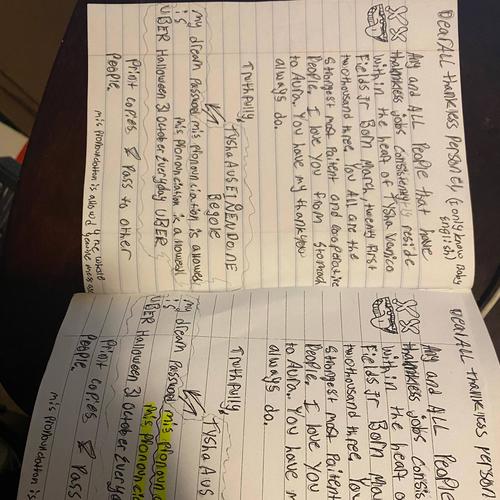 Dear ALL thankless Personel (I only know
English)
Any and ALL People that have
thankless jobs Consistency reside
within in the heart of Tysha
Fields Jr Born March, twenty First
two thousand three. You All are the
Strongest most Patient and cooperative
People. I love You From Stomach
to Aura. You have my thank you
always do.
Truthfully,
Begone
my dream Password mis phonoun ciation is allowed
is mis phonoun ciation is allowed
UBER Halloween 31 October Everyday UBER
Print copies & Pass to other
People.
mis phonoun ciation is allowed
Dear ALL thankless
Any and ALL People
thankless jobs
within in the heart
Fields Jr Born
two thousand three. You
Strongest most Patient
People. I love You
to Aura. You have m
always do.
Truthfully,
my dream Password mis phonoun
is mis phonoun
UBER Halloween 31 October Everyday
Print copies & Pass
People.
mis phonoun ciation is